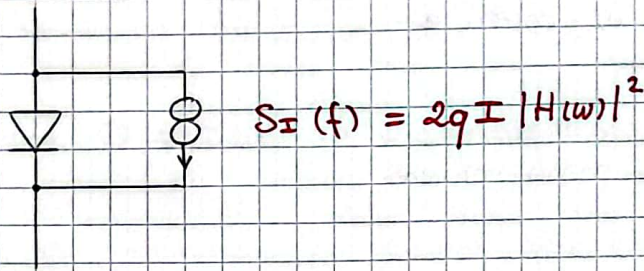 S_I (f) = 2qI |H(ω)|²